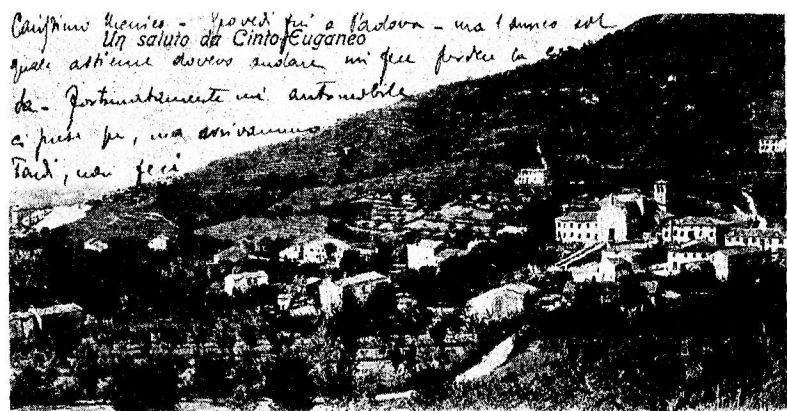 Carissimo Menico - Giovedì fui a Padova - ma l'amico col
Un saluto da Cinto Euganeo
quale assieme dovevo andare mi fece perdere la
da - Fortunatamente un automobile
ci prese su, ma arrivammo
Tardi, non feci